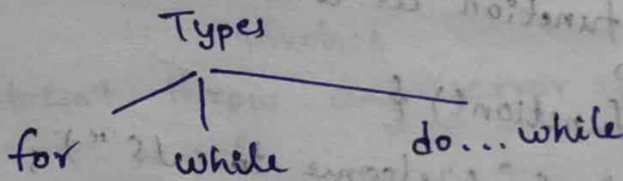 Types
for while do...while